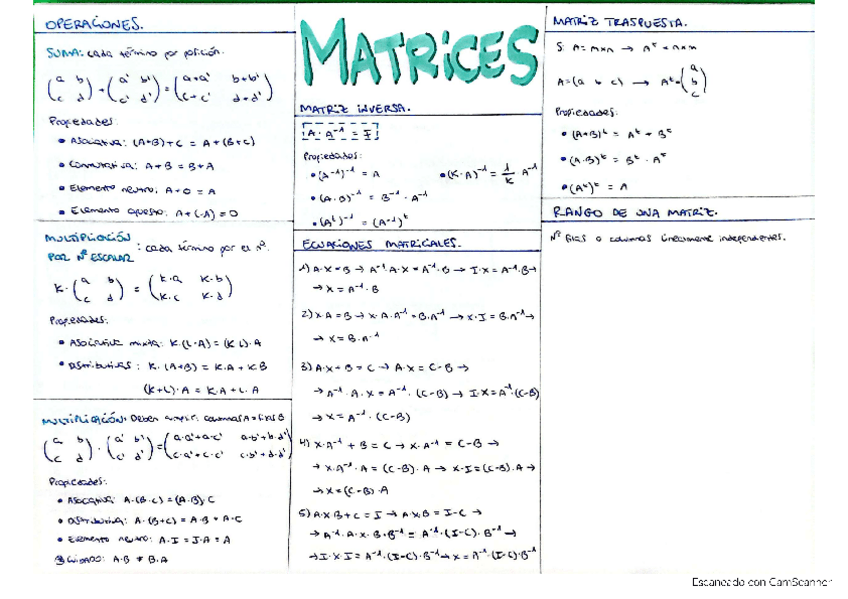 OPERACIONES.
SUMA: cada término por posición.
(a b) + (a' b') = (a+a' b+b')
(c d) (c' d') (c+c' d+d')
Propiedades:
• Asociativa: (A+B)+C = A+(B+C)
• Conmutativa: A+B = B+A
• Elemento neutro: A+0 = A
• Elemento opuesto: A+(-A)=0
MULTIPLICACIÓN
POR Nº ESCALAR : cada término por el nº.
K·(a b) = (K·a K·b)
(c d) (K·c K·d)
Propiedades:
• Asociativa mixta: K·(L·A)=(K·L)·A
• Distributivas: K·(A+B)= K·A + K·B
(K+L)·A = K·A + L·A
MULTIPLICACIÓN: Deben cumplir: columnas A = filas B
(a b) · (a' b') = (a·a'+a·c' a·b'+b·d')
(c d) (c' d') (c·a'+c·c' c·b'+d·d')
Propiedades:
• Asociativa: A·(B·C)=(A·B)·C
• Distributiva: A·(B+C) = A·B + A·C
• Elemento neutro: A·I = I·A = A
CUIDADO: A·B ≠ B·A
MATRICES
MATRIZ INVERSA.
A·A⁻¹ = I
Propiedades:
• (A⁻¹)⁻¹ = A • (K·A)⁻¹ = 1/K A⁻¹
• (A·B)⁻¹ = B⁻¹ · A⁻¹
• (Aᵗ)⁻¹ = (A⁻¹)ᵗ
ECUACIONES MATRICIALES.
1) A·X=B → A⁻¹·A·X = A⁻¹·B → I·X = A⁻¹·B →
→ X = A⁻¹·B
2) X·A = B → X·A·A⁻¹ = B·A⁻¹ → X·I = B·A⁻¹ →
→ X = B·A⁻¹
3) A·X + B = C → A·X = C-B →
→ A⁻¹·A·X = A⁻¹·(C-B) → I·X = A⁻¹·(C-B)
→ X = A⁻¹·(C-B)
4) X·A⁻¹ + B = C → X·A⁻¹ = C-B →
→ X·A⁻¹·A = (C-B)·A → X·I = (C-B)·A →
→ X = (C-B)·A
5) A·X·B + C = I → A·X·B = I-C →
→ A⁻¹·A·X·B·B⁻¹ = A⁻¹·(I-C)·B⁻¹ →
→ I·X·I = A⁻¹·(I-C)·B⁻¹ → X = A⁻¹·(I-C)·B⁻¹
MATRIZ TRASPUESTA.
Si A = m×n → Aᵗ = n×m
A = (a b c) → Aᵗ = (a b c)
Propiedades:
• (A+B)ᵗ = Aᵗ + Bᵗ
• (A·B)ᵗ = Bᵗ · Aᵗ
• (Aᵗ)ᵗ = A
RANGO DE UNA MATRIZ.
Nº filas o columnas linealmente independientes.
Escaneado con CamScanner